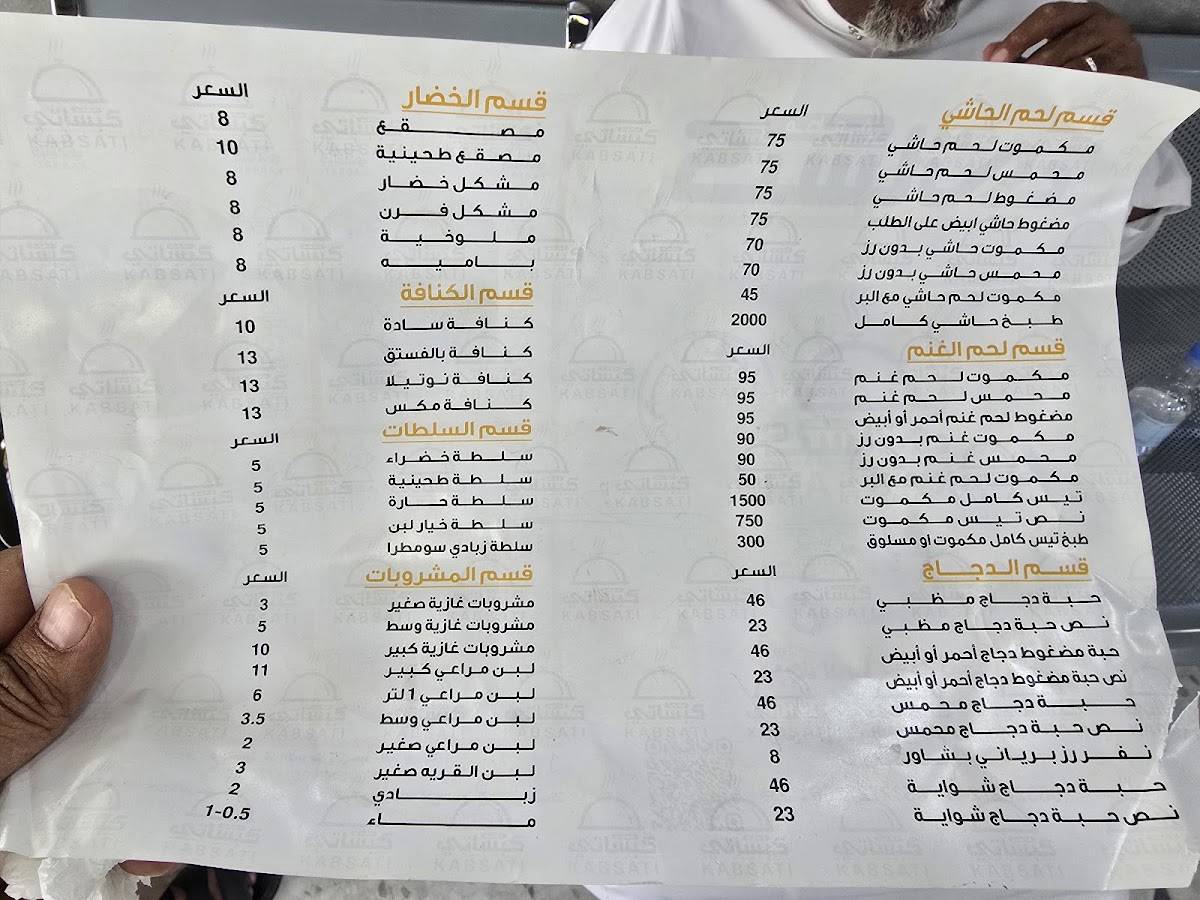 قسم لحم الحاشي السعر
مكموت لحم حاشي 75
محمس لحم حاشي 75
مضغوط لحم حاشي 75
مضغوط حاشي ابيض على الطلب 75
مكموت حاشي بدون رز 70
محمس حاشي بدون رز 70
مكموت لحم حاشي مع البر 45
طبخ حاشي كامل 2000
قسم لحم الغنم السعر
مكموت لحم غنم 95
محمس لحم غنم 95
مضغوط لحم غنم أحمر أو أبيض 95
مكموت غنم بدون رز 90
محمس غنم بدون رز 90
مكموت لحم غنم مع البر 50
تيس كامل مكموت 1500
نص تيس مكموت 750
طبخ تيس كامل مكموت او مسلوق 300
قسم الدجاج السعر
حبة دجاج مظبي 46
نص حبة دجاج مظبي 23
حبة مضغوط دجاج أحمر أو أبيض 46
نص حبة مضغوط دجاج أحمر أو أبيض 23
حبة دجاج محمس 46
نص حبة دجاج محمس 23
نفر رز برياني بشاور 8
حبة دجاج شواية 46
نص حبة دجاج شواية 23
قسم الخضار السعر
مصقع 8
مصقع طحينية 10
مشكل خضار 8
مشكل فرن 8
ملوخية 8
باميه 8
قسم الكنافة السعر
كنافة سادة 10
كنافة بالفستق 13
كنافة نوتيلا 13
كنافة مكس 13
قسم السلطات السعر
سلطة خضراء 5
سلطة طحينية 5
سلطة حارة 5
سلطة خيار لبن 5
سلطة زبادي سومطرا 5
قسم المشروبات السعر
مشروبات غازية صغير 3
مشروبات غازية وسط 5
مشروبات غازية كبير 10
لبن مراعي كبير 11
لبن مراعي 1 لتر 6
لبن مراعي وسط 3.5
لبن مراعي صغير 2
لبن القريه صغير 3
زبادي 2
ماء 1-0.5